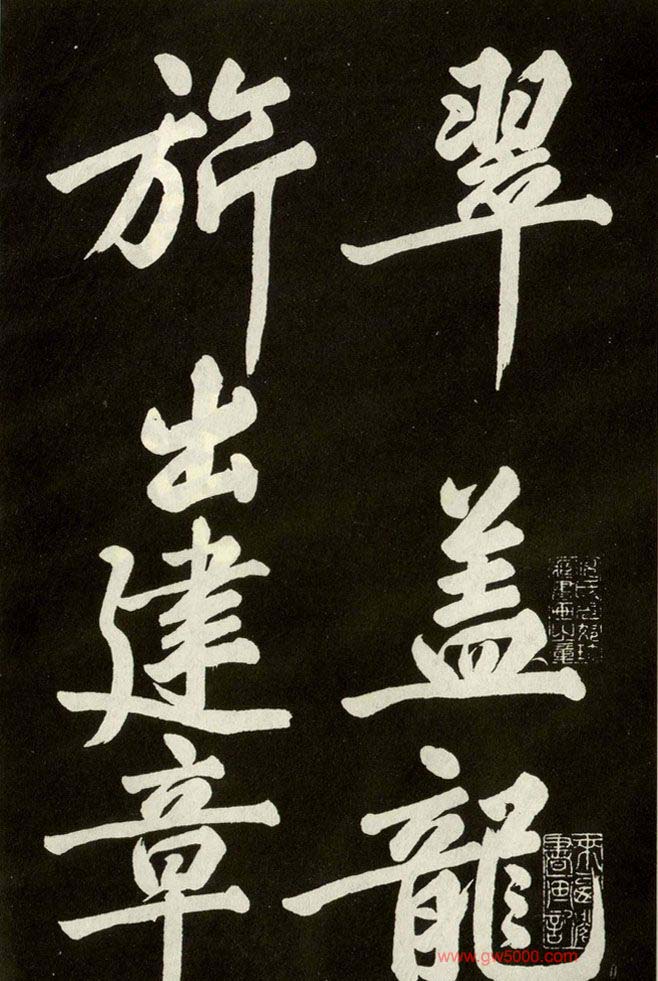 翠盖龍
旂出建章
www.gw5000.com